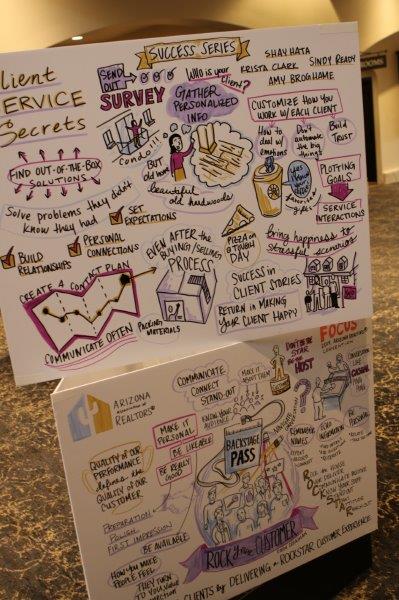 SUCCESS SERIES
SHAYHATA
SINDY READY
KRISTA CLARK
AMY BROGHAME
Client
SERVICE
Secrets
SEND
OUT
SURVEY
WHO is your
client?
GATHER
PERSONALIZED
INFO
CUSTOMIZE HOW YOU
WORK w/ EACH CLIENT
HOW TO
deal w/
emotions
Don't
automate
the big
things
Build
TRUST
FIND OUT-OF-THE-BOX
SOLUTIONS
Condo!!!
BUT
old heart
beautiful
old hardwoods
PLOTTING
GOALS
SERVICE
INTERACTIONS
Solve problems they didn't
know they had
SET
EXPECTATIONS
PERSONAL
CONNECTIONS
BUILD
RELATIONSHIPS
EVEN AFTER the
BUYING/SELLING
PROCESS
PIZZA on
a TOUGH
DAY
bring happiness to
stressful scenarios
CREATE A CONTACT PLAN
SUCCESS in
CLIENT STORIES
RETURN in MAKING
YOUR CLIENT HAPPY
PACKING
MATERIALS
COMMUNICATE OFTEN
ARIZONA
ASSOCIATION OF
REALTORS®
FOCUS
COMMUNICATE
CONNECT
STAND-OUT
MAKE IT
ABOUT THEM
DON'T BE
THE STAR
be the
HOST
CASUAL
KNOW YOUR
AUDIENCE
MAKE IT
PERSONAL
BE LIKEABLE
BE REALLY
GOOD!
BACKSTAGE
PASS
REMEMBER
NAMES
BE
PERSONAL
QUALITY OF OUR
PERFORMANCE
defines the
QUALITY OF OUR
CUSTOMER
PREPARATION
POLISH
FIRST IMPRESSION
BE AVAILABLE
HOW YOU MAKE
PEOPLE FEEL
THEY TURN
TO YOU
ROCK Your CUSTOMER
CLIENTS by DELIVERING a ROCKSTAR CUSTOMER EXPERIENCE